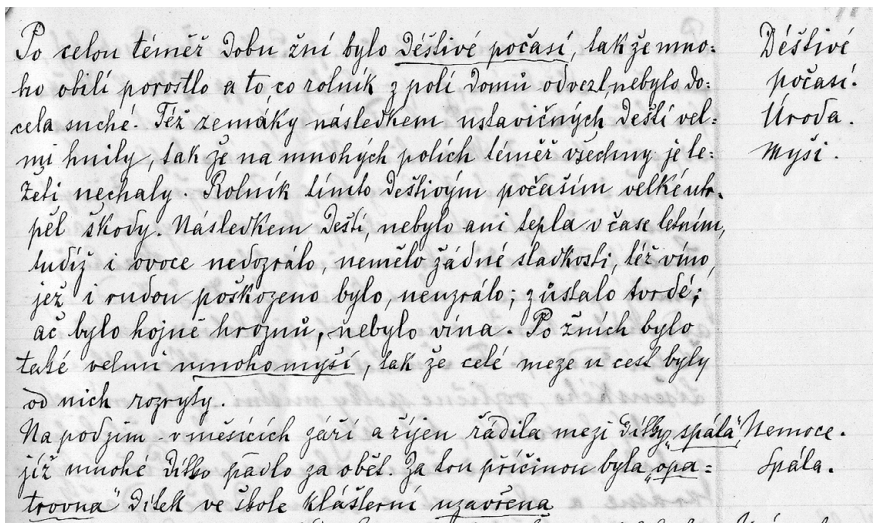 Po celou téměř dobu žní bylo deštivé počasí, tak že mno-
ho obilí porostlo a to co rolník z polí domů odvezl nebylo do-
cela suché. Též zemáky následkem ustavičných dešťů vel-
mi hnily, tak že na mnohých polích téměř všechny je le-
žeti nechaly. Rolník tímto deštivým počasím velké utr-
pěl škody. Následkem deští, nebylo ani tepla v čase letním,
tudíž i ovoce nedozrálo, nemělo žádné sladkosti, též víno,
jež i rudou poškozeno bylo, neuzrálo; zůstalo tvrdé;
ač bylo hojně hroznů, nebylo vína. Po žních bylo
také velmi mnoho myší, tak že celé meze u cest byly
od nich rozryty.
Na podzim v měsících září a říjen řádila mezi dítky „spála“
již mnohé dítko padlo za oběť. Za tou příčinou byla „opa-
trovna“ dítek ve škole klášterní uzavřena
Déštivé
počasí.
Úroda.
Myši.
Nemoce.
Spála.